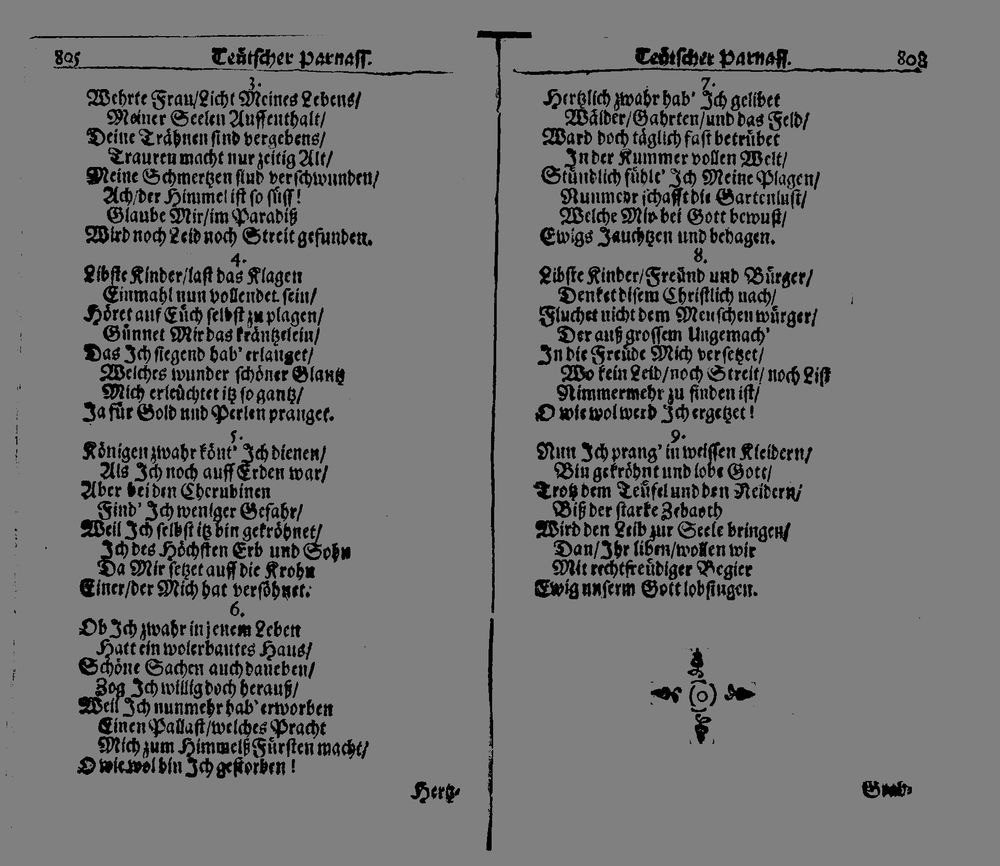 805 Teütscher Parnass.
3.
Wehrte Frau/Licht Meines Lebens/
Meiner Seelen Auffenthalt/
Deine Trähnen sind vergebens/
Trauren macht nur zeitig Alt/
Meine Schmertzen sind verschwunden/
Ach/der Himmel ist so süss!
Glaube Mir/im Paradiß
Wird noch Leid noch Streit gefunden.
4.
Libste Kinder/last das Klagen
Einmahl nun vollendet sein/
Höret auf Eüch selbst zu plagen/
Günnet Mir das kräntzelein/
Das Ich siegend hab' erlanget/
Welches wunder schöner Glantz
Mich erleüchtet itz so gantz/
Ja für Gold und Perlen pranget.
5.
Königen zwahr könt' Ich dienen/
Als Ich noch auff Erden war/
Aber bei den Cherubinen
Find' Ich weniger Gefahr/
Weil Ich selbst itz bin gekröhnet/
Ich des Höchsten Erb und Sohn
Da Mir setzet auff die Krohn
Einer/der Mich hat versöhnet.
6.
Ob Ich zwahr in jenem Leben
Hatt ein wolerbautes Haus/
Schöne Sachen auch daneben/
Zog Ich willig doch herauß/
Weil Ich nunmehr hab' erworben
Einen Pallast/welches Pracht
Mich zum Himmelß Fürsten macht/
O wie wol bin Ich gestorben!
Hertz-
Teütscher Parnass. 808
7.
Hertzlich zwahr hab' Ich gelibet
Wälder/Gahrten/und das Feld/
Ward doch täglich fast betrübet
In der Kummer vollen Welt/
Stündlich fühlt' Ich Meine Plagen/
Nunmehr schafft die Gartenlust/
Welche Mir bei Gott bewust/
Ewigs Jauchtzen und behagen.
8.
Libste Kinder/Freünd und Bürger/
Denket disem Christlich nach/
Fluchet nicht dem Menschenwürger/
Der auß grossem Ungemach'
In die Freüde Mich versetzet/
Wo kein Leid/noch Streit/noch List
Nimmermehr zu finden ist/
O wie wol werd Ich ergetzet!
9.
Nun Ich prang' in weissen Kleidern/
Bin gekröhnt und lobe Gott/
Trotz dem Teüfel und den Neidern/
Biß der starke Zebaoth
Wird den Leib zur Seele bringen/
Dan/Ihr liben/wollen wir
Mit rechtfreüdiger Begier
Ewig unserm Gott lobsingen.
Grab-